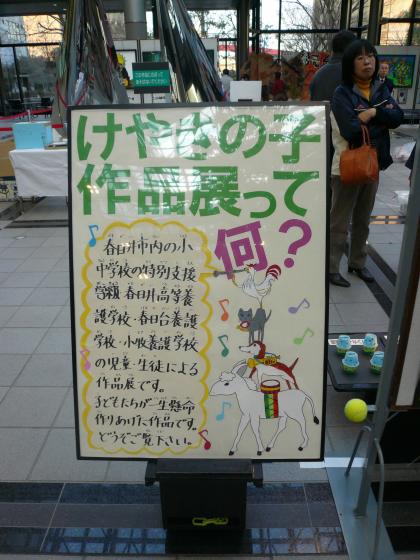 けやきの子
作品展って
何？
春日井市内の小
中学校の特別支援
学級・春日井高等養
護学校・春日台養護
学校・小牧養護学校
の児童・生徒による
作品展です。
子どもたちが一生懸命
作りあげた作品です。
どうぞご覧下さい。